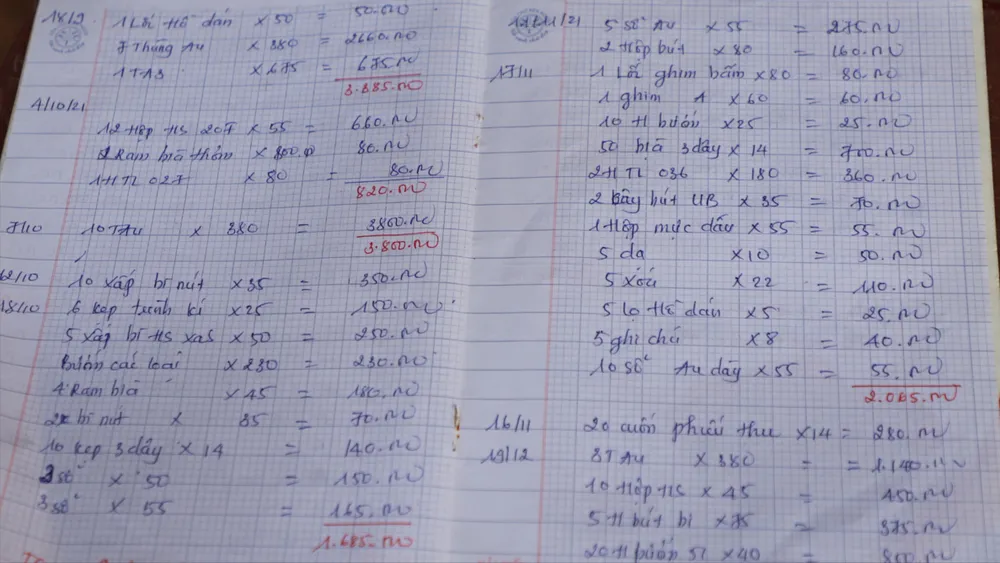 18/9 1 Lối Hồ dán ×50 = 50.000
7 Thùng A4 ×380 = 2660.000
1 TA3 ×675 = 675.000
3.385.000
4/10/21
12 Hộp HS 207 ×55 = 660.000
Ram bìa thơm × 80.000
1H TL 027 ×80 = 80.000
820.000
7/10 10TA4 × 380 = 3800.000
3.800.000
12/10 10 xấp bì nút ×35 = 350.000
18/10 6 kẹp trình kí ×25 = 150.000
5 xấp bì HS ×50 = 250.000
Bướm các loại ×230 = 230.000
4 Ram bìa ×45 = 180.000
2x bì nút × 35 = 70.000
10 kẹp 3 dây ×14 = 140.000
3 số × 50 = 150.000
3 số × 55 = 165.000
1.685.000
/11/21 5 số A4 ×55 = 275.000
2 Hộp bút ×80 = 160.000
17/11 1 Lối ghim bấm ×80 = 80.000
1 ghim A ×60 = 60.000
10 H bướm ×25 = 25.000
50 bìa 3 dây ×14 = 700.000
2H TL 036 ×180 = 360.000
2 cây bút UB ×35 = 70.000
1 Hộp mực dấu ×55 = 55.000
5 dạ ×10 = 50.000
5 xóa ×22 = 110.000
5 lọ Hồ dán ×5 = 25.000
5 ghi chú ×8 = 40.000
10 số A4 dày ×55 = 55.000
2.065.000
16/11 20 cuốn phiếu thu ×14 = 280.000
19/12 3TA4 ×380 = = 1.140.000
10 Hộp HS × 45 = 450.000
5 H bút bi ×75 = 375.000
20 H bướm 51 ×40 = 800.000